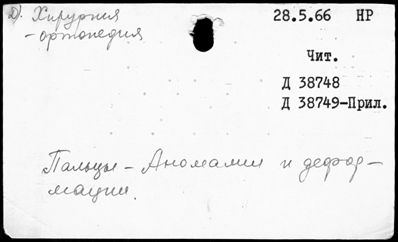 Д). Хирургия
- ортопедия
28.5.66 НР
Чит.
Д 38748
Д 38749-Прил.
Пальцы - Аномалии и дефор-
мации.